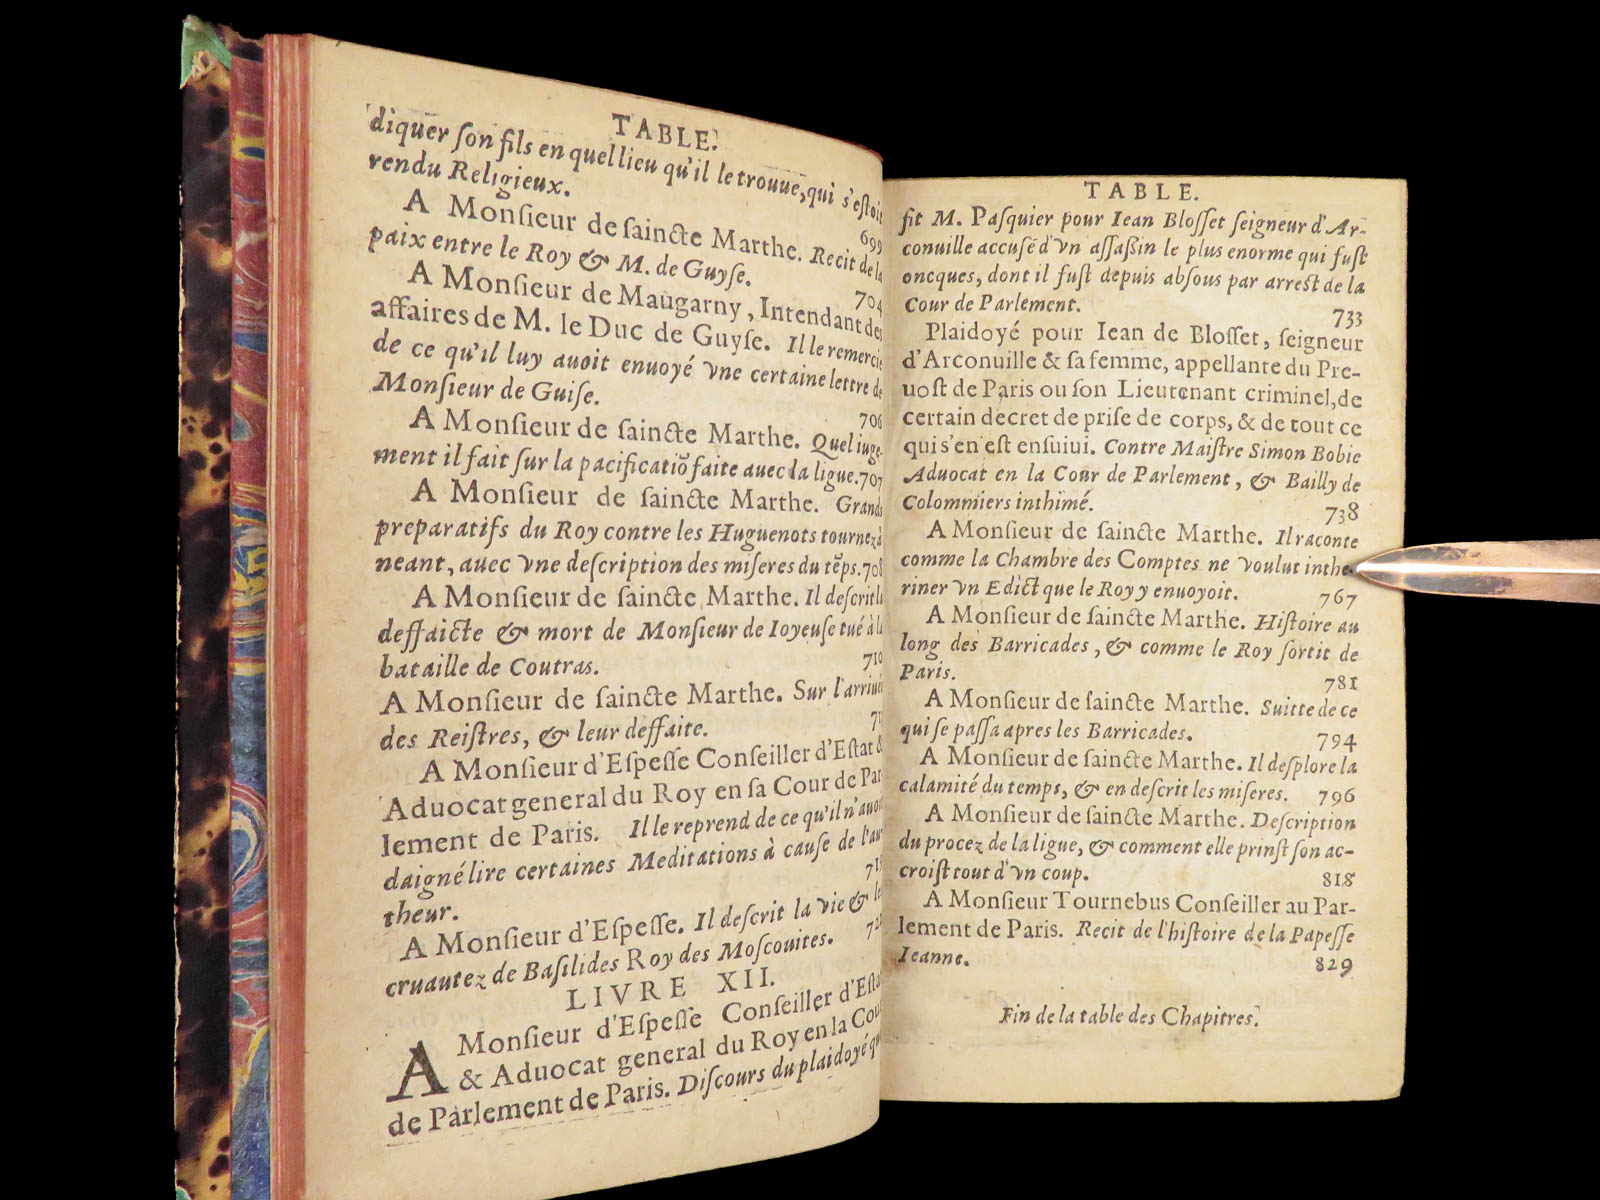 TABLE.
diquer ſon fils en quel lieu qu'il le trouue, qui s'eſtoit
rendu Religieux. 699
A Monſieur de ſaincte Marthe. Recit de la
paix entre le Roy & M. de Guyſe. 704
A Monſieur de Maugarny, Intendant des
affaires de M. le Duc de Guyſe. Il le remercie
de ce qu'il luy auoit enuoyé vne certaine lettre de
Monſieur de Guiſe. 706
A Monſieur de ſaincte Marthe. Quel iuge-
ment il fait ſur la pacificatiō faite auec la ligue. 707
A Monſieur de ſaincte Marthe. Grands
preparatifs du Roy contre les Huguenots tournez à
neant, auec vne deſcription des miſeres du tēps. 708
A Monſieur de ſaincte Marthe. Il deſcrit la
deffaicte & mort de Monſieur de Ioyeuſe tué à la
bataille de Coutras. 710
A Monſieur de ſaincte Marthe. Sur l'arriuée
des Reiſtres, & leur deffaite.
A Monſieur d'Eſpeſſe Conſeiller d'Eſtat &
Aduocat general du Roy en ſa Cour de Par-
lement de Paris. Il le reprend de ce qu'il n'auoit
daigné lire certaines Meditations à cauſe de l'au-
theur.
A Monſieur d'Eſpeſſe. Il deſcrit la vie & les
cruautez de Baſilides Roy des Moſcouites.
LIVRE XII.
A Monſieur d'Eſpeſſe Conſeiller d'Eſtat
& Aduocat general du Roy en la Cour
de Parlement de Paris. Diſcours du plaidoyé que
TABLE.
fit M. Paſquier pour Iean Bloſſet ſeigneur d'Ar-
conuille accuſé d'vn aſſaßin le plus enorme qui fuſt
oncques, dont il fuſt depuis abſous par arreſt de la
Cour de Parlement. 733
Plaidoyé pour Iean de Bloſſet, ſeigneur
d'Arconuille & ſa femme, appellante du Pre-
uoſt de Paris ou ſon Lieutenant criminel, de
certain decret de priſe de corps, & de tout ce
qui s'en eſt enſuiui. Contre Maiſtre Simon Bobie
Aduocat en la Cour de Parlement, & Bailly de
Colommiers inthimé. 738
A Monſieur de ſaincte Marthe. Il raconte
comme la Chambre des Comptes ne voulut inthe-
riner vn Edict que le Roy y enuoyoit. 767
A Monſieur de ſaincte Marthe. Hiſtoire au
long des Barricades, & comme le Roy ſortit de
Paris. 781
A Monſieur de ſaincte Marthe. Suitte de ce
qui ſe paſſa apres les Barricades. 794
A Monſieur de ſaincte Marthe. Il deſplore la
calamité du temps, & en deſcrit les miſeres. 796
A Monſieur de ſaincte Marthe. Deſcription
du procez de la ligue, & comment elle prinſt ſon ac-
croiſt tout d'vn coup. 818
A Monſieur Tournebus Conſeiller au Par-
lement de Paris. Recit de l'hiſtoire de la Papeſſe
Ieanne. 829
Fin de la table des Chapitres.